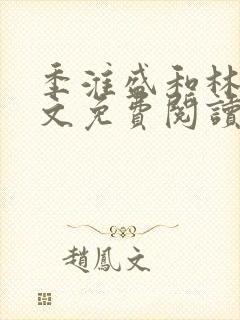 季淮盛和林
文免費閱讀
趙鳳文